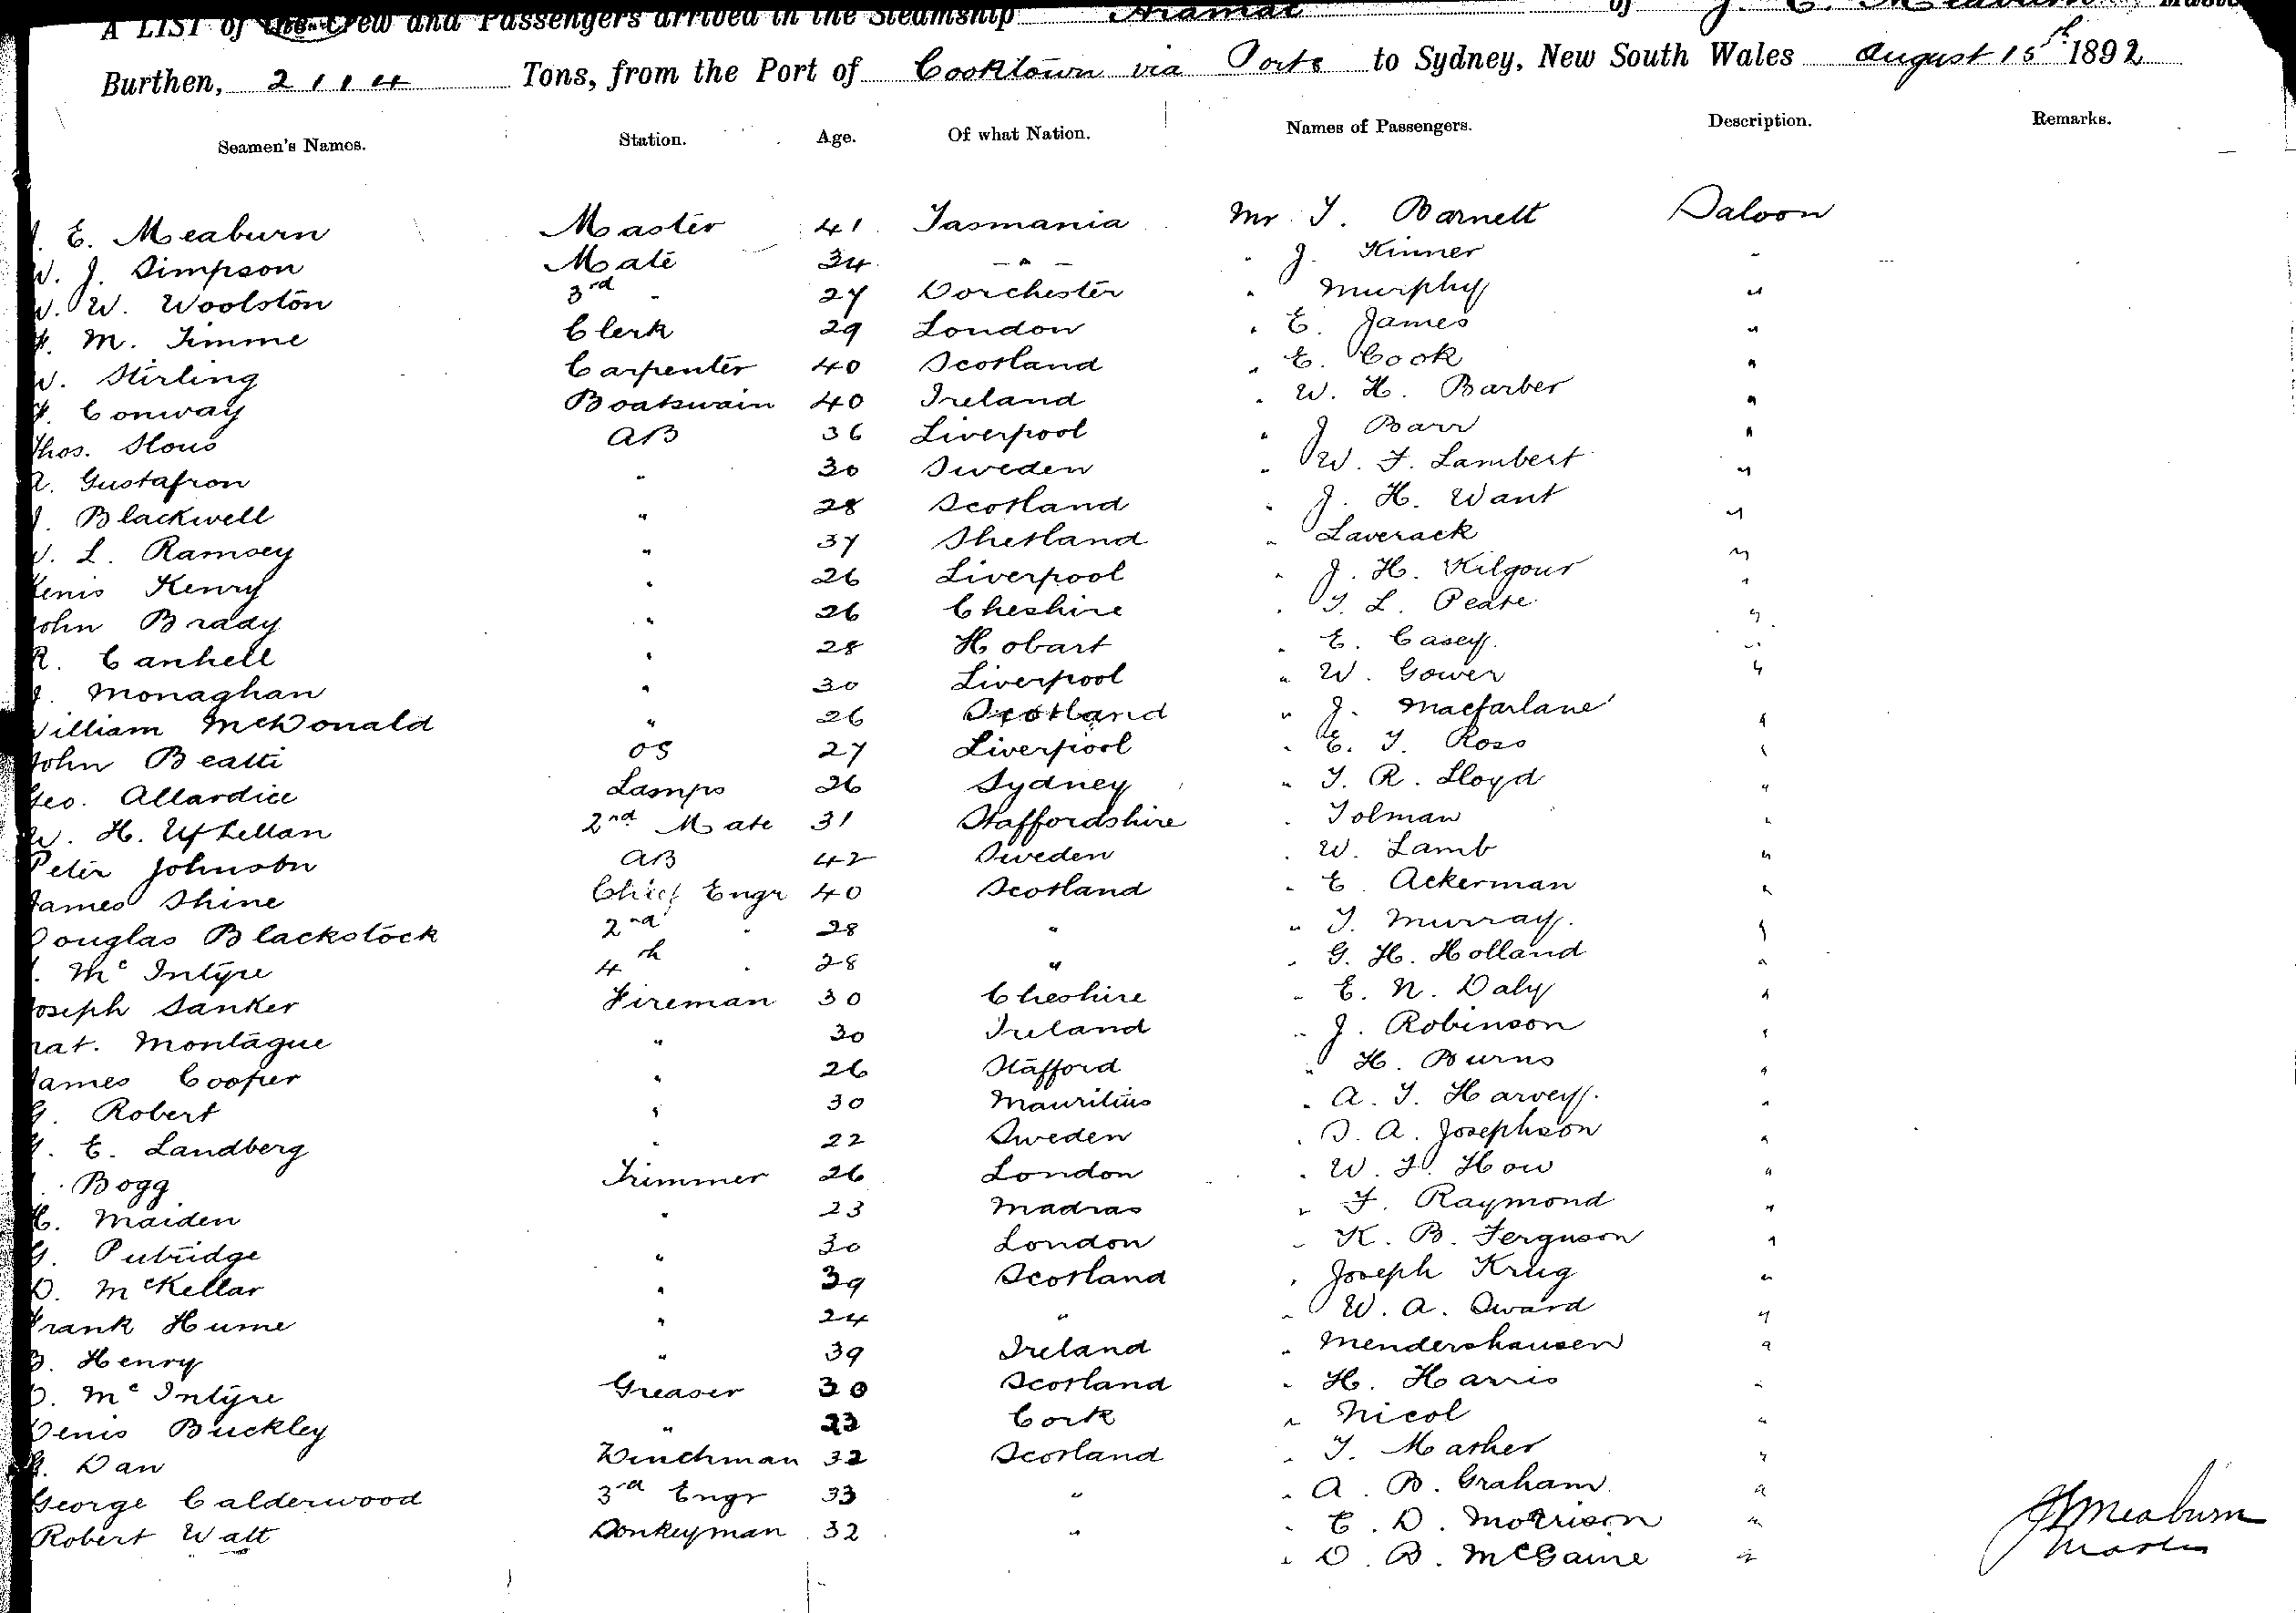 A LIST of the Crew and Passengers arrived in the Steamship Aramac of J. E. Meaburn Master
Burthen, 2114 Tons, from the Port of Cooktown via Ports to Sydney, New South Wales August 15th 1892
Seamen's Names. Station. Age. Of what Nation. Names of Passengers. Description. Remarks.
E. Meaburn Master 41 Tasmania Mr T. Barnett Saloon
W. J. Simpson Mate 34 " " J. Kinner "
W. W. Woolston 3rd " 27 Dorchester " Murphy "
M. Timme Clerk 29 London " E. James "
W. Stirling Carpenter 40 Scotland " E. Cook "
Conway Boatswain 40 Ireland " W. H. Barber "
Thos. Hous AB 36 Liverpool " J Barr "
A. Gustafson " 30 Sweden " W. F. Lambert "
J. Blackwell " 28 Scotland " J. H. Want "
W. L. Ramsey " 37 Shetland " Laverack "
Denis Kenry " 26 Liverpool " J. H. Kilgour "
John Brady " 26 Cheshire " T. L. Peate "
R. Canhell " 28 Hobart " E. Casey "
J. Monaghan " 30 Liverpool " W. Gower "
William McDonald " 26 Scotland " J. Macfarlane "
John Beatti OS 27 Liverpool " E. T. Ross "
Geo. Allardice Lamps 26 Sydney " T. R. Lloyd "
W. H. 2nd Mate 31 Staffordshire " Tolman "
Peter Johnson AB 42 Sweden " W. Lamb "
James Shine Chief Engr 40 Scotland " E. Ackerman "
Douglas Blackstock 2nd " 28 " " T. Murray "
McIntyre 4th " 28 " " G. H. Holland "
Joseph Sanker Fireman 30 Cheshire " E. N. Daly "
Pat. Montague " 30 Ireland " J. Robinson "
James Cooper " 26 Stafford " H. Burns "
G. Robert " 30 Mauritius " A. T. Harvey "
E. Landberg " 22 Sweden " S. A. Josephson "
Bogg Trimmer 26 London " W. F. How "
H. Maiden " 23 Madras " F. Raymond "
G. Putridge " 30 London " K. B. Ferguson "
D. McKellar " 39 Scotland " Joseph Krug "
Frank Hume " 24 " " W. A. Sward "
B. Henry " 39 Ireland " Mendershausen "
D. McIntyre Greaser 30 Scotland " H. Harris "
Denis Buckley " 23 Cork " Nicol "
Dan Winchman 32 Scotland " T. Mather "
George Calderwood 3rd Engr 33 " " A. B. Graham "
Robert Watt Donkeyman 32 " " E. D. Morrison "
" D. B. McGaine "
J E Meaburn
Master